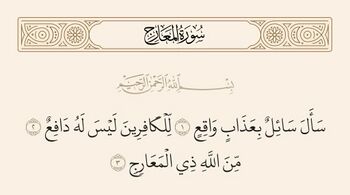 سُورَةُ المَعَارِجِ
بِسْمِ اللَّهِ الرَّحْمَٰنِ الرَّحِيمِ
سَأَلَ سَائِلٌ بِعَذَابٍ وَاقِعٍ ١ لِّلْكَافِرِينَ لَيْسَ لَهُ دَافِعٌ ٢
مِّنَ اللَّهِ ذِي الْمَعَارِجِ ٣